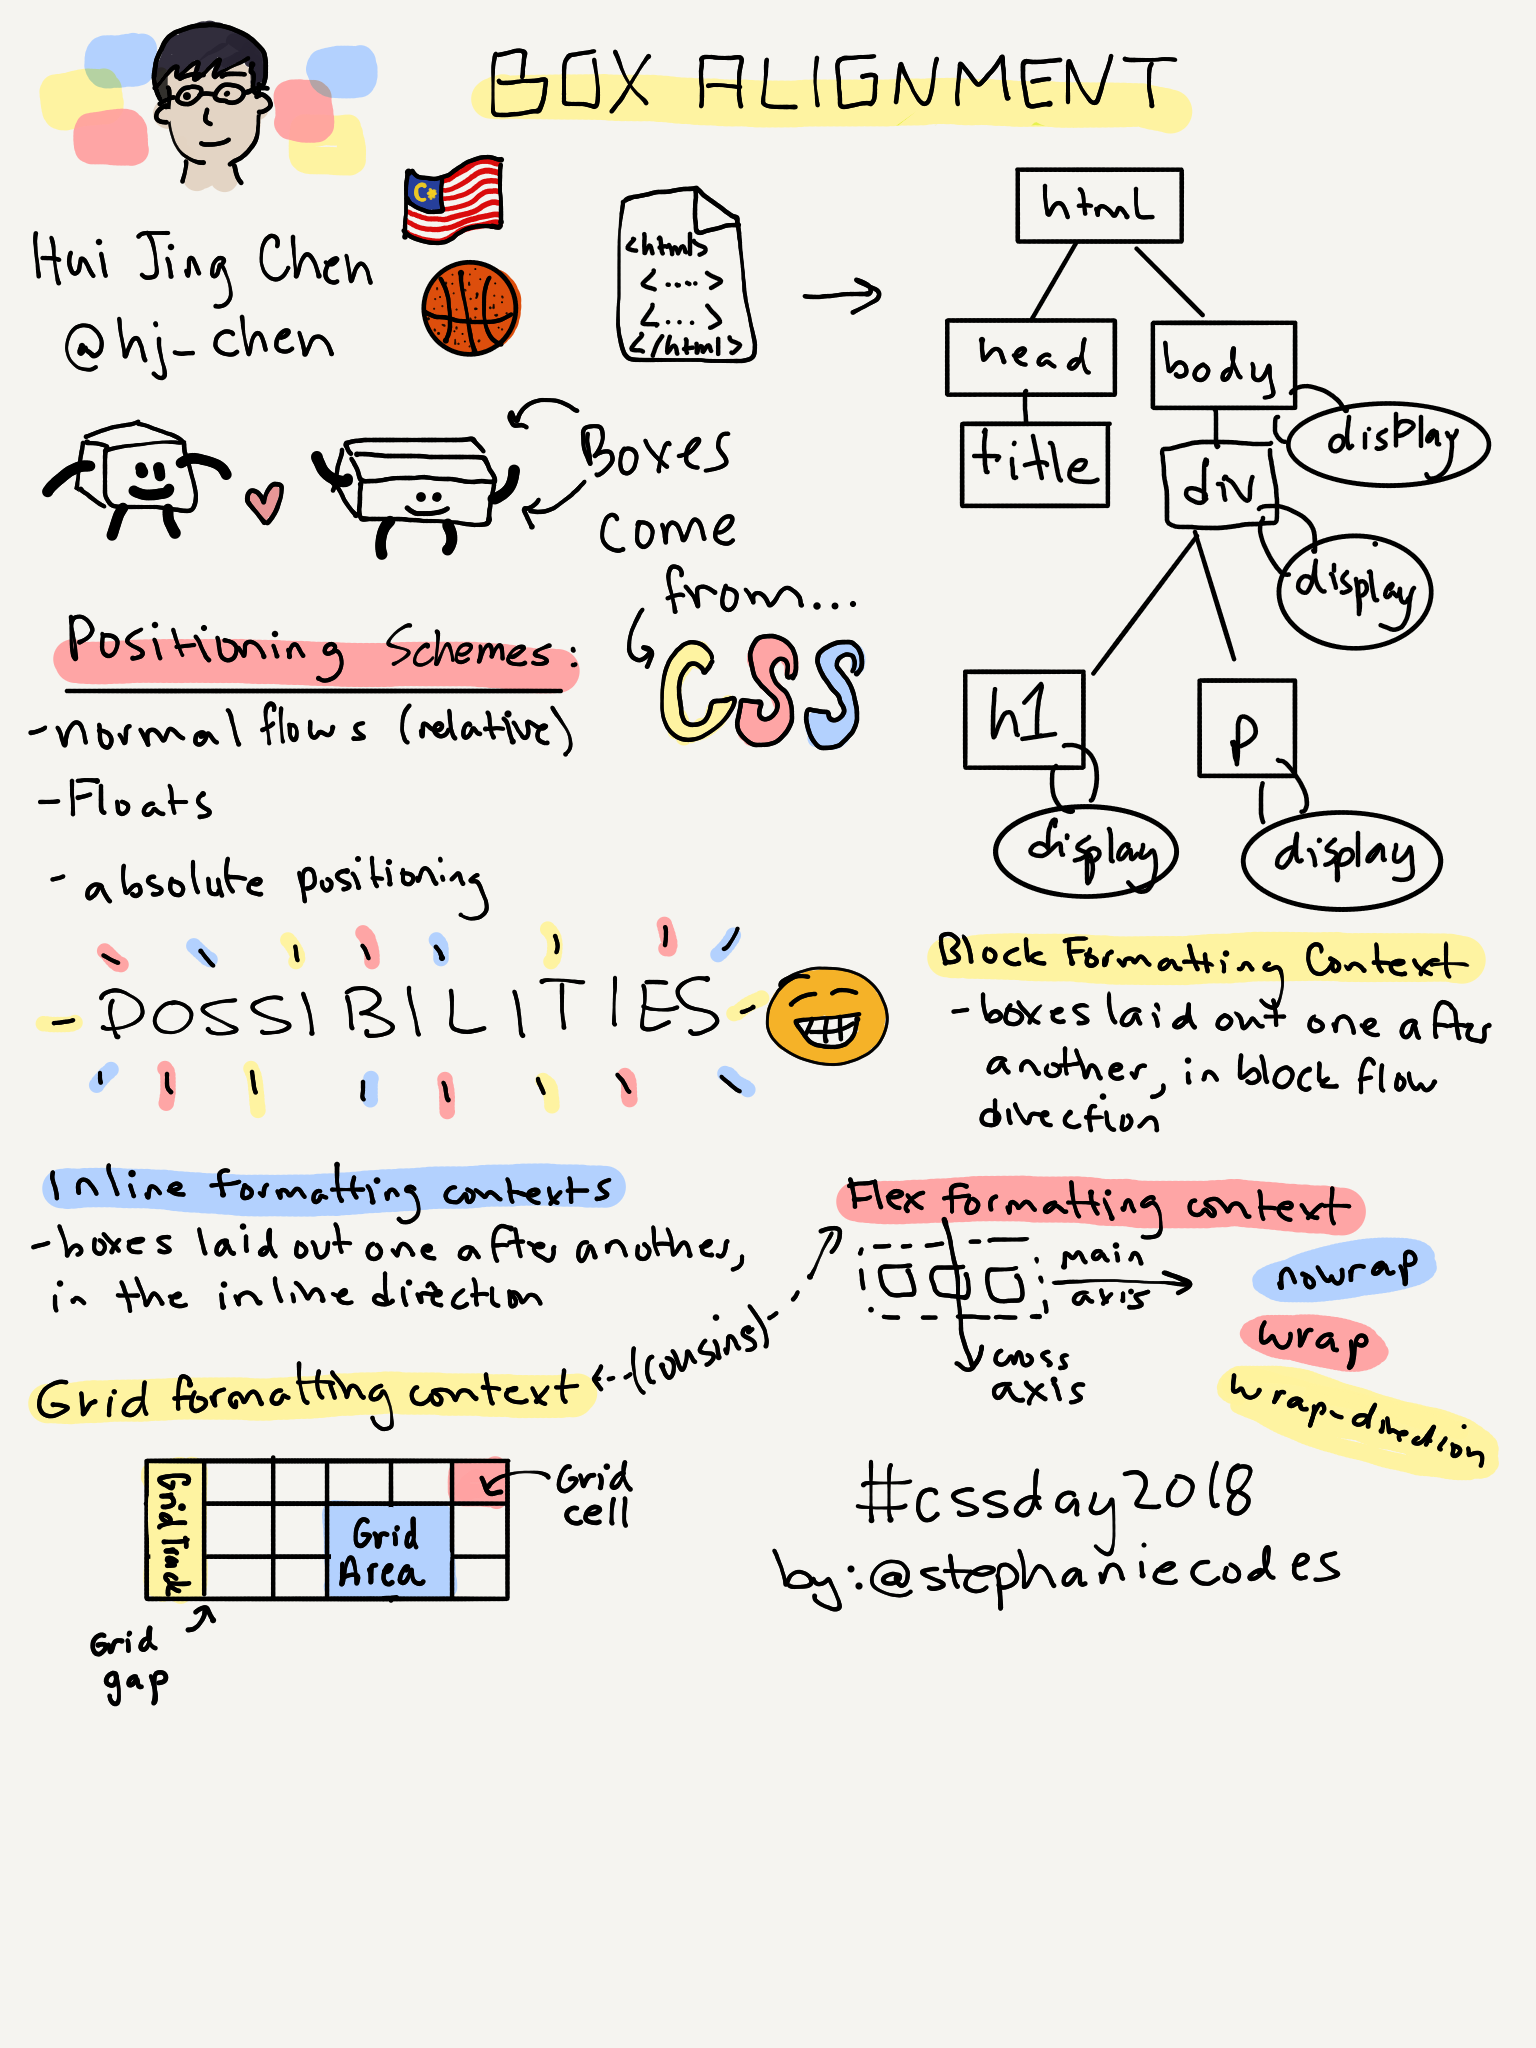 BOX ALIGNMENT
Hui Jing Chen
@hj_chen
<html>
<.....>
<...>
</html>
html
head
body
title
div
display
display
h1
p
display
display
Boxes
come
from...
CSS
Positioning Schemes:
- normal flows (relative)
- Floats
- absolute positioning
- POSSIBILITIES -
Block Formatting Context
- boxes laid out one after
another, in block flow
direction
Inline formatting contexts
- boxes laid out one after another,
in the inline direction
Flex formatting context
main
axis
cross
axis
nowrap
wrap
wrap-direction
(cousins)
Grid formatting context
Grid Track
Grid
Area
Grid
cell
Grid
gap
#cssday2018
by: @stephaniecodes